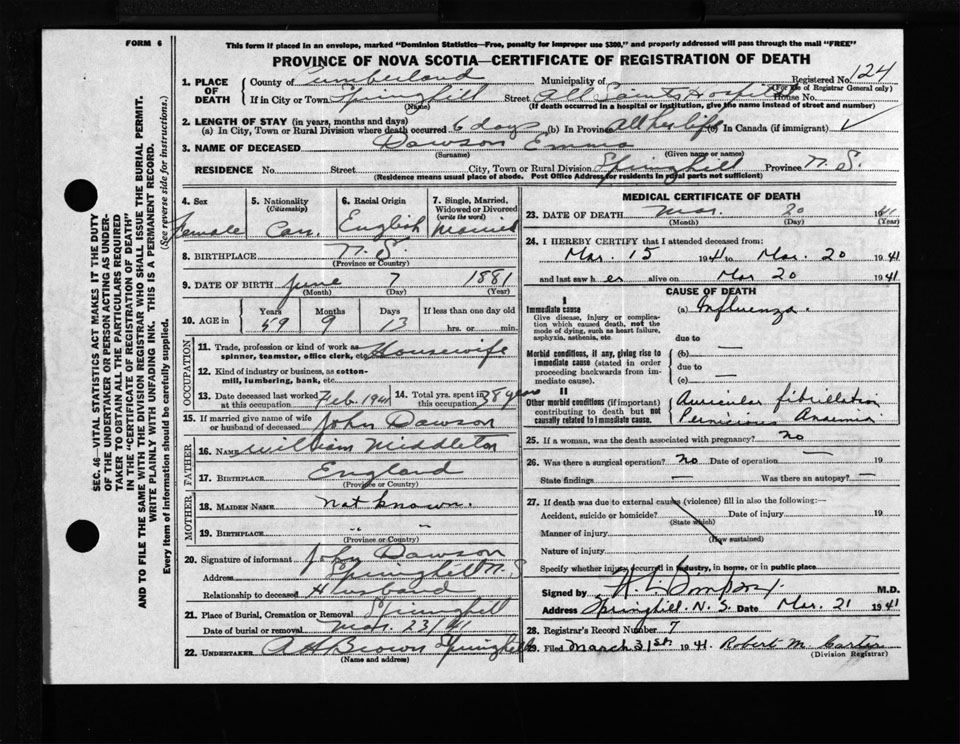 FORM 6
This form if placed in an envelope, marked "Dominion Statistics—Free, penalty for improper use $300," and properly addressed will pass through the mail "FREE"
PROVINCE OF NOVA SCOTIA—CERTIFICATE OF REGISTRATION OF DEATH
Registered No. 124
(For use of Registrar General only)
1. PLACE OF DEATH
County of Cumberland Municipality of
If in City or Town Springhill Street All Saints Hospital House No.
(Name) (If death occurred in a hospital or institution, give the name instead of street and number)
2. LENGTH OF STAY (in years, months and days)
(a) In City, Town or Rural Division where death occurred 6 days (b) In Province All her life (c) In Canada (if immigrant) ✓
3. NAME OF DECEASED Dawson Emma
(Surname) (Given name or names)
RESIDENCE No. Street City, Town or Rural Division Springhill Province N. S.
(Residence means usual place of abode. Post Office Address for residents in rural parts not sufficient)
4. Sex Female
5. Nationality (Citizenship) Can.
6. Racial Origin English
7. Single, Married, Widowed or Divorced (write the word) Married
8. BIRTHPLACE N. S.
(Province or Country)
9. DATE OF BIRTH June 7 1881
(Month) (Day) (Year)
10. AGE in Years 59 Months 9 Days 13 If less than one day old hrs. or min.
OCCUPATION
11. Trade, profession or kind of work as spinner, teamster, office clerk, etc. Housewife
12. Kind of industry or business, as cotton-mill, lumbering, bank, etc.
13. Date deceased last worked at this occupation Feb. 1941
14. Total yrs. spent in this occupation 38 years
15. If married give name of wife or husband of deceased John Dawson
FATHER
16. NAME William Middleton
17. BIRTHPLACE England
(Province or Country)
MOTHER
18. MAIDEN NAME not known.
19. BIRTHPLACE " "
(Province or Country)
20. Signature of informant John Dawson
Address Springhill N. S.
Relationship to deceased Husband
21. Place of Burial, Cremation or Removal Springhill
Date of burial or removal Mar. 23/41
22. UNDERTAKER A H Brown Springhill
(Name and address)
MEDICAL CERTIFICATE OF DEATH
23. DATE OF DEATH Mar. 20 1941
(Month) (Day) (Year)
24. I HEREBY CERTIFY that I attended deceased from:
Mar. 15 1941 to Mar. 20 1941
and last saw h er alive on Mar 20 1941
CAUSE OF DEATH
I
Immediate cause (a) Influenza.
Give disease, injury or complication which caused death, not the mode of dying, such as heart failure, asphyxia, asthenia, etc.
due to
Morbid conditions, if any, giving rise to immediate cause (stated in order proceeding backwards from immediate cause).
(b) —
due to
(c) —
II
Other morbid conditions (if important) contributing to death but not causally related to immediate cause.
Auricular fibrillation
Pernicious Anaemia
25. If a woman, was the death associated with pregnancy? no
26. Was there a surgical operation? no Date of operation — 19
State findings — Was there an autopsy? —
27. If death was due to external causes (violence) fill in also the following:—
Accident, suicide or homicide? Date of injury 19
(State which)
Manner of injury
(How sustained)
Nature of injury
Specify whether injury occurred in industry, in home, or in public place
Signed by M.D.
Address Springhill. N. S. Date Mar. 21 1941
28. Registrar's Record Number 7
29. Filed March 31st 1941. Robert M. Carter
(Division Registrar)
SEC. 46—VITAL STATISTICS ACT MAKES IT THE DUTY
OF THE UNDERTAKER OR PERSON ACTING AS UNDER-
TAKER TO OBTAIN ALL THE PARTICULARS REQUIRED
IN THE "CERTIFICATE OF REGISTRATION OF DEATH"
AND TO FILE THE SAME WITH THE DIVISION REGISTRAR WHO SHALL ISSUE THE BURIAL PERMIT.
WRITE PLAINLY WITH UNFADING INK. THIS IS A PERMANENT RECORD.
Every item of information should be carefully supplied. (See reverse side for instructions.)